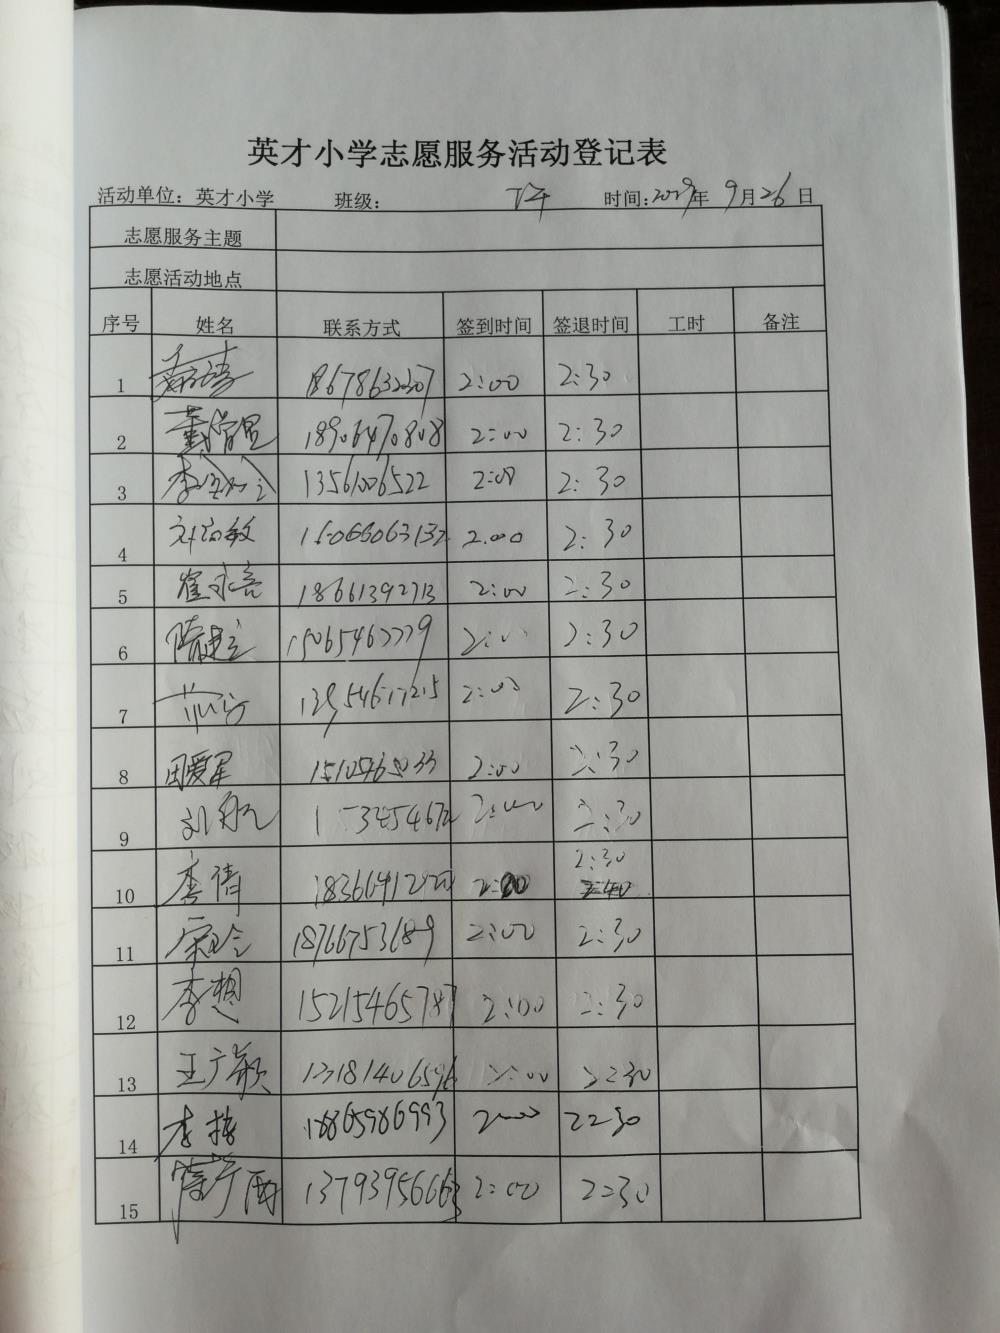 英才小学志愿服务活动登记表
活动单位：英才小学 班级： 下午 时间：2019年 9月26日
志愿服务主题
志愿活动地点
序号 姓名 联系方式 签到时间 签退时间 工时 备注
1 18678632307 2:00 2:30
2 18906470808 2:00 2:30
3 13561006522 2:00 2:30
4 2:00 2:30
5 崔永亮 18661392713 2:00 2:30
6 隋建立 15065467779 2:00 2:30
7 13954617215 2:00 2:30
8 田爱军 2:00 2:30
9 刘航 2:00 2:30
10 李倩 2:00 2:30
11 宋玲 18766753689 2:00 2:30
12 李想 15215465787 2:00 2:30
13 王广颖 13181406596 2:00 2:30
14 李梅 18865986993 2:00 2:30
15 13793956663 2:00 2:30